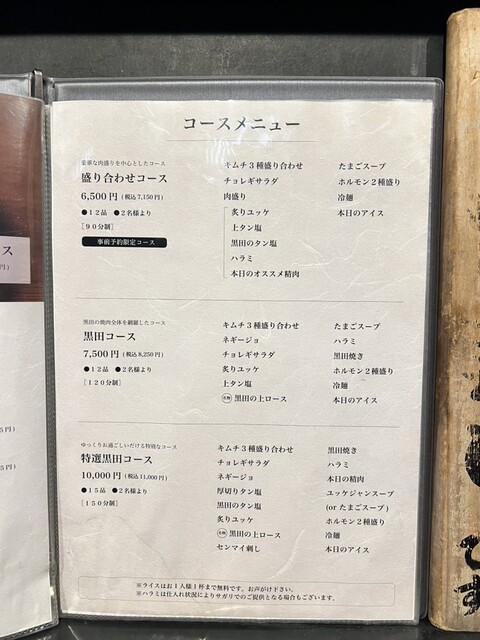 コースメニュー
豪華な肉盛りを中心としたコース
盛り合わせコース
6,500円（税込7,150円）
●12品 ●2名様より
［90分制］
事前予約限定コース
キムチ3種盛り合わせ
チョレギサラダ
肉盛り
炙りユッケ
上タン塩
黒田のタン塩
ハラミ
本日のオススメ精肉
たまごスープ
ホルモン2種盛り
冷麺
本日のアイス
黒田の焼肉全体を網羅したコース
黒田コース
7,500円（税込8,250円）
●12品 ●2名様より
［120分制］
キムチ3種盛り合わせ
ネギージョ
チョレギサラダ
炙りユッケ
上タン塩
黒田の上ロース
たまごスープ
ハラミ
黒田焼き
ホルモン2種盛り
冷麺
本日のアイス
ゆっくりお過ごしいだける特別なコース
特選黒田コース
10,000円（税込11,000円）
●15品 ●2名様より
［150分制］
キムチ3種盛り合わせ
チョレギサラダ
ネギージョ
厚切りタン塩
黒田のタン塩
炙りユッケ
黒田の上ロース
センマイ刺し
黒田焼き
ハラミ
本日の精肉
ユッケジャンスープ
(or たまごスープ)
ホルモン2種盛り
冷麺
本日のアイス
※ライスはお1人様1杯まで無料です。お声がけ下さい。
※ハラミは仕入れ状況によりサガリでのご提供となる場合もございます。